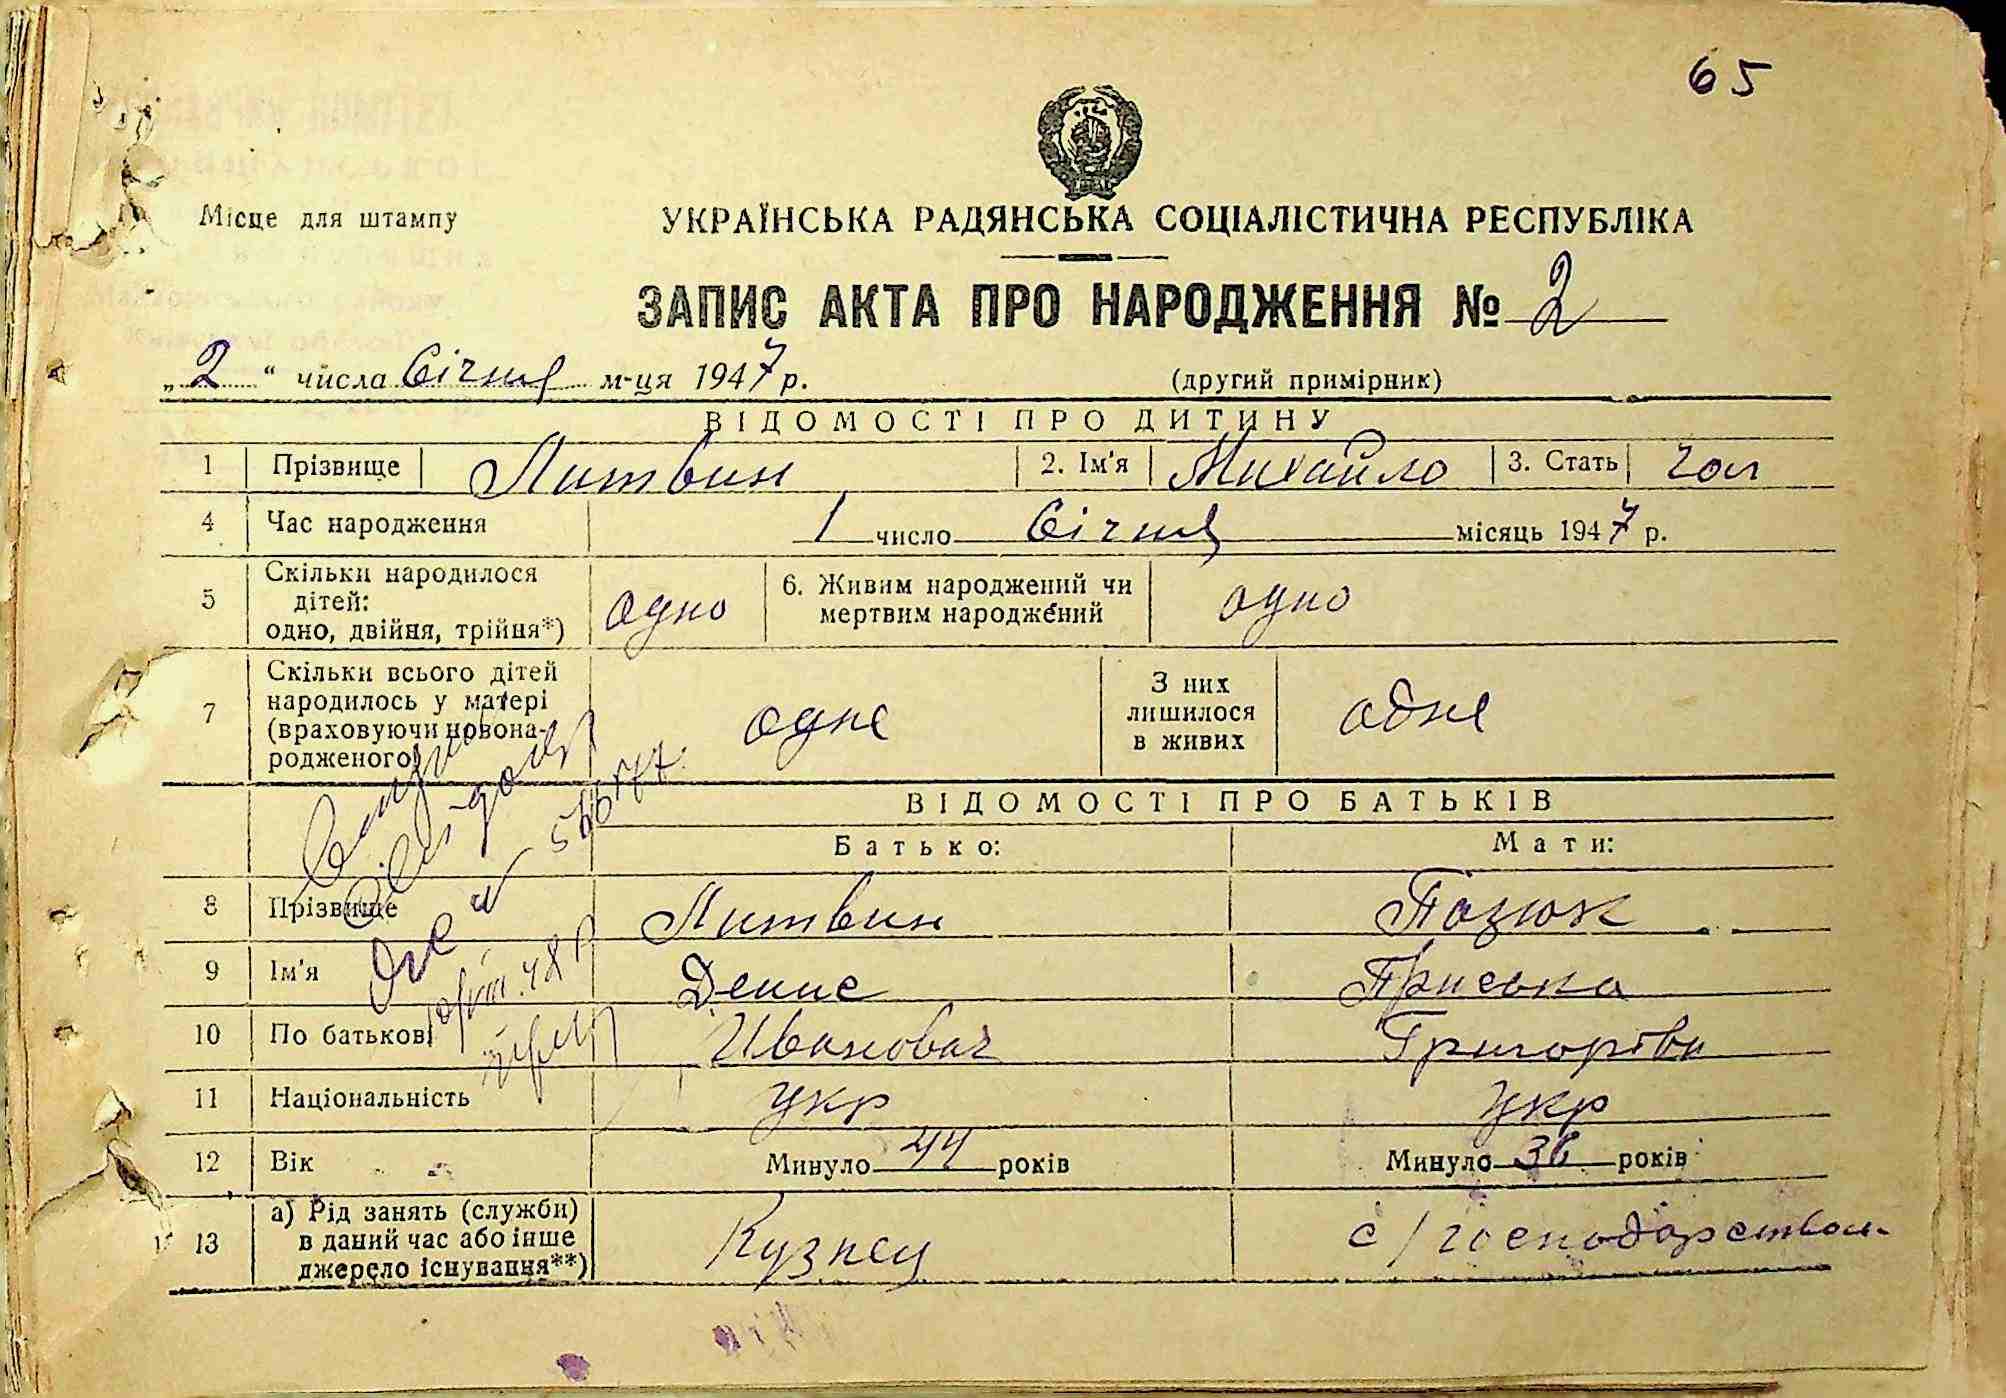 65
Місце для штампу
УКРАЇНСЬКА РАДЯНСЬКА СОЦІАЛІСТИЧНА РЕСПУБЛІКА
ЗАПИС АКТА ПРО НАРОДЖЕННЯ № 2
„2“ числа Січня м-ця 1947 р. (другий примірник)
ВІДОМОСТІ ПРО ДИТИНУ
1 Прізвище Литвин 2. Ім'я Михайло 3. Стать чол
4 Час народження 1 число Січня місяць 1947 р.
5 Скільки народилося дітей: одно, двійня, трійня*) одно 6. Живим народжений чи мертвим народжений одно
7 Скільки всього дітей народилось у матері (враховуючи новонародженого) одне З них лишилося в живих одне
ВІДОМОСТІ ПРО БАТЬКІВ
Батько: Мати:
8 Прізвище Литвин Позюк
9 Ім'я Денис Приська
10 По батькові Ивановач Григорівн
11 Національність укр укр
12 Вік Минуло 44 років Минуло 36 років
13 а) Рід занять (служби) в даний час або інше джерело існування**) Кузнец с/господарством